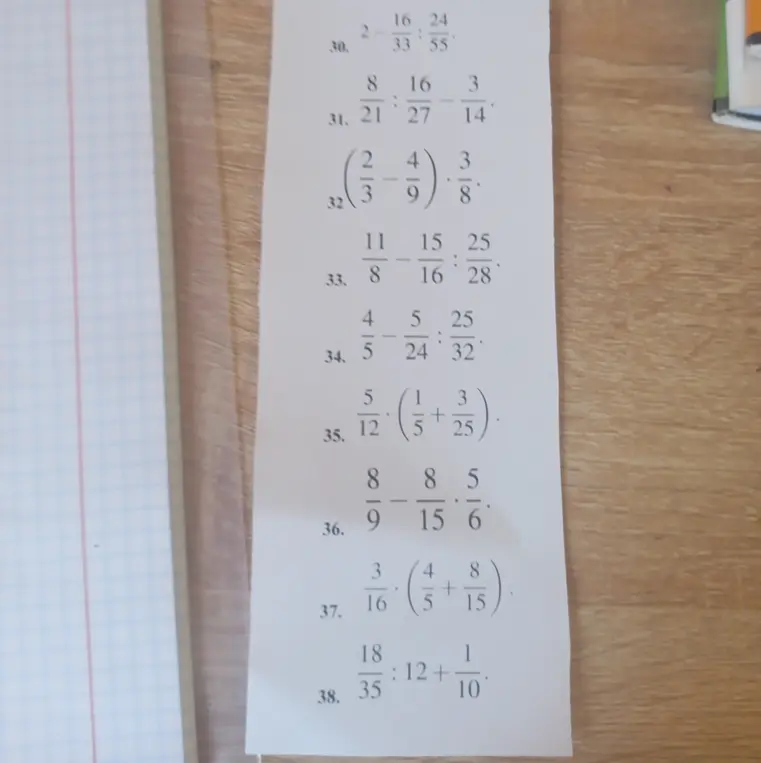 30. 2 - 16/33 : 24/55.
31. 8/21 : 16/27 - 3/14.
32 (2/3 - 4/9) · 3/8.
33. 11/8 - 15/16 : 25/28.
34. 4/5 - 5/24 : 25/32.
35. 5/12 · (1/5 + 3/25).
36. 8/9 - 8/15 · 5/6.
37. 3/16 · (4/5 + 8/15).
38. 18/35 : 12 + 1/10.